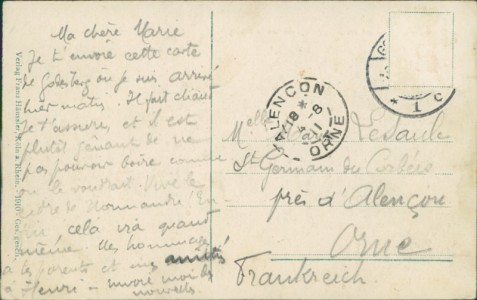 Ma chère Marie
Je t'envoie cette carte
de Godesberg où je suis arrivé
hier matin. Il fait chaud
je t'assure et il est
plutôt gênant de ne
pas pouvoir boire comme
on le voudrait. Vive le
cidre de Normandie! En
cela ira quand
même. Mes hommages
à tes parents et mes amitiés
à Henri - envoie moi des
nouvelles.
Verlag Franz
ALENÇON
ORNE
* 1 C
Melle Marie Lesaule
St Germain du Corbéis
près d'Alençon
Orne
Frankreich